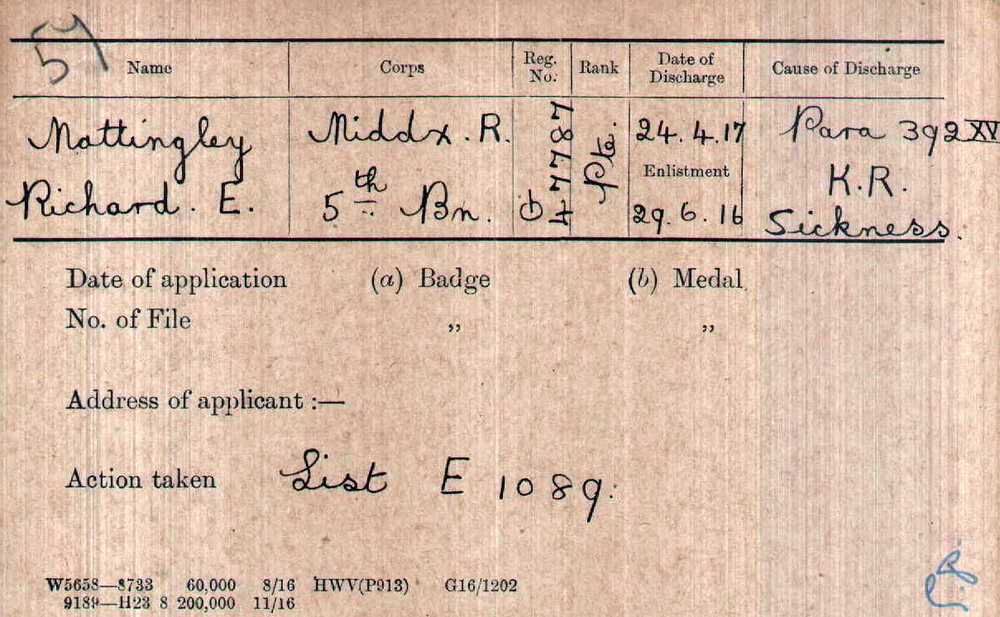 5
Name Corps Reg. No. Rank Date of Discharge Cause of Discharge
Mattingley Middx. R. Pte. 24. 4. 17 Para 392 XVI
Enlistment K.R.
Richard. E. 5th Bn. 29. 6. 16 Sickness.
Date of application (a) Badge (b) Medal
No. of File „ „
Address of applicant :—
Action taken List E 1089.
W5658—8733 60,000 8/16 HWV(P913) G16/1202
9189—H23 8 200,000 11/16